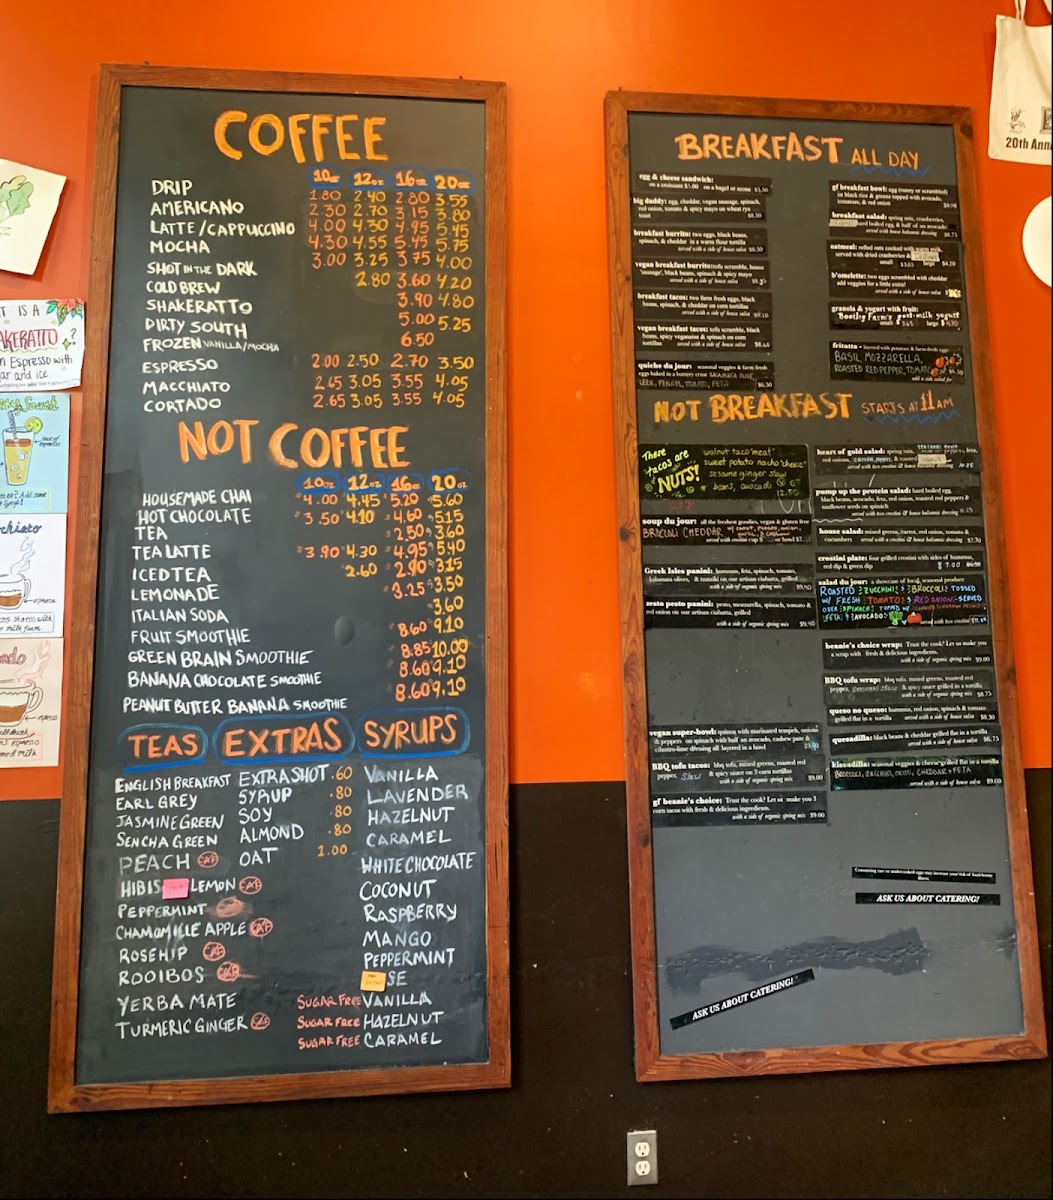 COFFEE
10oz 12oz 16oz 20oz
DRIP 1.80 2.40 2.80 3.55
AMERICANO 2.30 2.70 3.15 3.80
LATTE/CAPPUCCINO 4.00 4.30 4.95 5.45
MOCHA 4.30 4.55 5.45 5.75
SHOT IN THE DARK 3.00 3.25 3.75 4.00
COLD BREW 2.80 3.60 4.20
SHAKERATTO 3.90 4.80
DIRTY SOUTH 5.00 5.25
FROZEN VANILLA/MOCHA 6.50
ESPRESSO 2.00 2.50 2.70 3.50
MACCHIATO 2.65 3.05 3.55 4.05
CORTADO 2.65 3.05 3.55 4.05
NOT COFFEE
10oz 12oz 16oz 20oz
HOUSEMADE CHAI 4.00 4.45 5.20 5.60
HOT CHOCOLATE 3.50 4.10 4.60 5.15
TEA 2.50 3.60
TEA LATTE 3.90 4.30 4.95 5.40
ICED TEA 2.60 2.90 3.15
LEMONADE 3.25 3.50
ITALIAN SODA 3.60
FRUIT SMOOTHIE 8.60 9.10
GREEN BRAIN SMOOTHIE 8.85 10.00
BANANA CHOCOLATE SMOOTHIE 8.60 9.10
PEANUT BUTTER BANANA SMOOTHIE 8.60 9.10
TEAS
ENGLISH BREAKFAST
EARL GREY
JASMINE GREEN
SENCHA GREEN
PEACH CAF
HIBIS LEMON CAF
PEPPERMINT
CHAMOMILLE APPLE CAF
ROSEHIP CAF
ROOIBOS CAF
YERBA MATE
TURMERIC GINGER CAF
EXTRAS
EXTRA SHOT .60
SYRUP .80
SOY .80
ALMOND .80
OAT 1.00
SYRUPS
VANILLA
LAVENDER
HAZELNUT
CARAMEL
WHITE CHOCOLATE
COCONUT
RASPBERRY
MANGO
PEPPERMINT
SE
SUGAR FREE VANILLA
SUGAR FREE HAZELNUT
SUGAR FREE CARAMEL
BREAKFAST ALL DAY
egg & cheese sandwich:
on a croissant $5.00 on a bagel or scone $5.50
big daddy: egg, cheddar, vegan sausage, spinach,
red onion, tomato & spicy mayo on wheat rye
toast $8.50
breakfast burrito: two eggs, black beans,
spinach, & cheddar in a warm flour tortilla
served with a side of house salsa $8.50
vegan breakfast burrito: tofu scramble, house
'sausage', black beans, spinach & spicy mayo
served with a side of house salsa
breakfast tacos: two farm fresh eggs, black
beans, spinach, & cheddar on corn tortillas
served with a side of house salsa
vegan breakfast tacos: tofu scramble, black
beans, spicy veganaise & spinach on corn
tortillas served with a side of house salsa
quiche du jour: seasonal veggies & farm fresh
eggs baked in a buttery crust
LEEK, FENNEL, TOMATO, FETA $6.50
gf breakfast bowl: egg (runny or scrambled)
in black rice & greens topped with avocado,
tomatoes, & red onion $9.00
breakfast salad: spring mix, cranberries,
hard boiled egg, & half of an avocado
served with house balsamic dressing $8.75
oatmeal: rolled oats cooked with warm milk
served with dried cranberries &
small large $4.20
b'omelette: two eggs scrambled with cheddar
add veggies for a little extra!
served with a side of house salsa
granola & yogurt with fruit:
Booting Farm's goat-milk yogurt
small large
frittata - layered with potatoes & farm-fresh eggs
BASIL, MOZZARELLA,
ROASTED RED PEPPER, TOMATO
add a side salad for
NOT BREAKFAST STARTS AT 11AM
There are tacos are NUTS!
walnut taco "meat"
sweet potato nacho "cheeze"
sesame ginger slaw
beans, avocado
12.50
soup du jour: all the freshest goodies, vegan & gluten free
BROCCOLI CHEDDAR
served with crostini cup or bowl
Greek Isles panini: hummus, feta, spinach, tomato,
kalamata olives, & tzatziki on our artisan ciabatta, grilled
with a side of spring mix
zesto pesto panini: pesto, mozzarella, spinach, tomato &
red onion on our artisan ciabatta, grilled
with a side of spring mix $9.40
vegan super-bowl: quinoa with marinated tempeh, onions
& peppers on spinach with half an avocado, cashew pate &
cilantro-lime dressing all layered in a bowl
BBQ tofu tacos: bbq tofu, mixed greens, roasted red
pepper, Slaw & spicy sauce on 3 corn tortillas
with a side of spring mix $9.00
gf beanie's choice: Trust the cook? Let us make you 3
corn tacos with fresh & delicious ingredients.
with a side of organic spring mix $9.00
heart of gold salad: spring mix,
red onions, & roasted
served with two crostini & house balsamic dressing
pump up the protein salad: hard boiled egg,
black beans, avocado, feta, red onion, roasted red peppers &
sunflower seeds on spinach
served with two crostini & house balsamic dressing
house salad: mixed greens, carrot, red onion, tomato &
cucumbers served with a crostini & house balsamic dressing
crostini plate: four grilled crostini with sides of hummus,
red dip & green dip $ 7.00
salad du jour: a showcase of local, seasonal produce
ROASTED ZUCCHINI & BROCCOLI TOSSED
W/ FRESH TOMATO & RED ONION SERVED
OVER SPINACH TOPPED W/
FETA & AVOCADO
beanie's choice wrap: Trust the cook? Let us make you
a wrap with fresh & delicious ingredients.
with a side of organic spring mix $9.00
BBQ tofu wrap: bbq tofu, mixed greens, roasted red
pepper, & spicy sauce grilled in a tortilla
with a side of organic spring mix $8.75
queso no queso: hummus, red onion, spinach & tomato
grilled flat in a tortilla with a side of house salsa $8.50
quesadilla: black beans & cheddar grilled flat in a tortilla
with a side of house salsa $6.75
kissadilla: seasonal veggies & cheese grilled flat in a tortilla
BROCCOLI, ZUCCHINI, ONION, CHEDDAR & FETA
with a side of house salsa $9.00
Consuming raw or undercooked eggs may increase your risk of food-borne
illness.
ASK US ABOUT CATERING!
ASK US ABOUT CATERING!
20th Ann
T IS A
AKERATTO?
n Espresso with
ar and ice